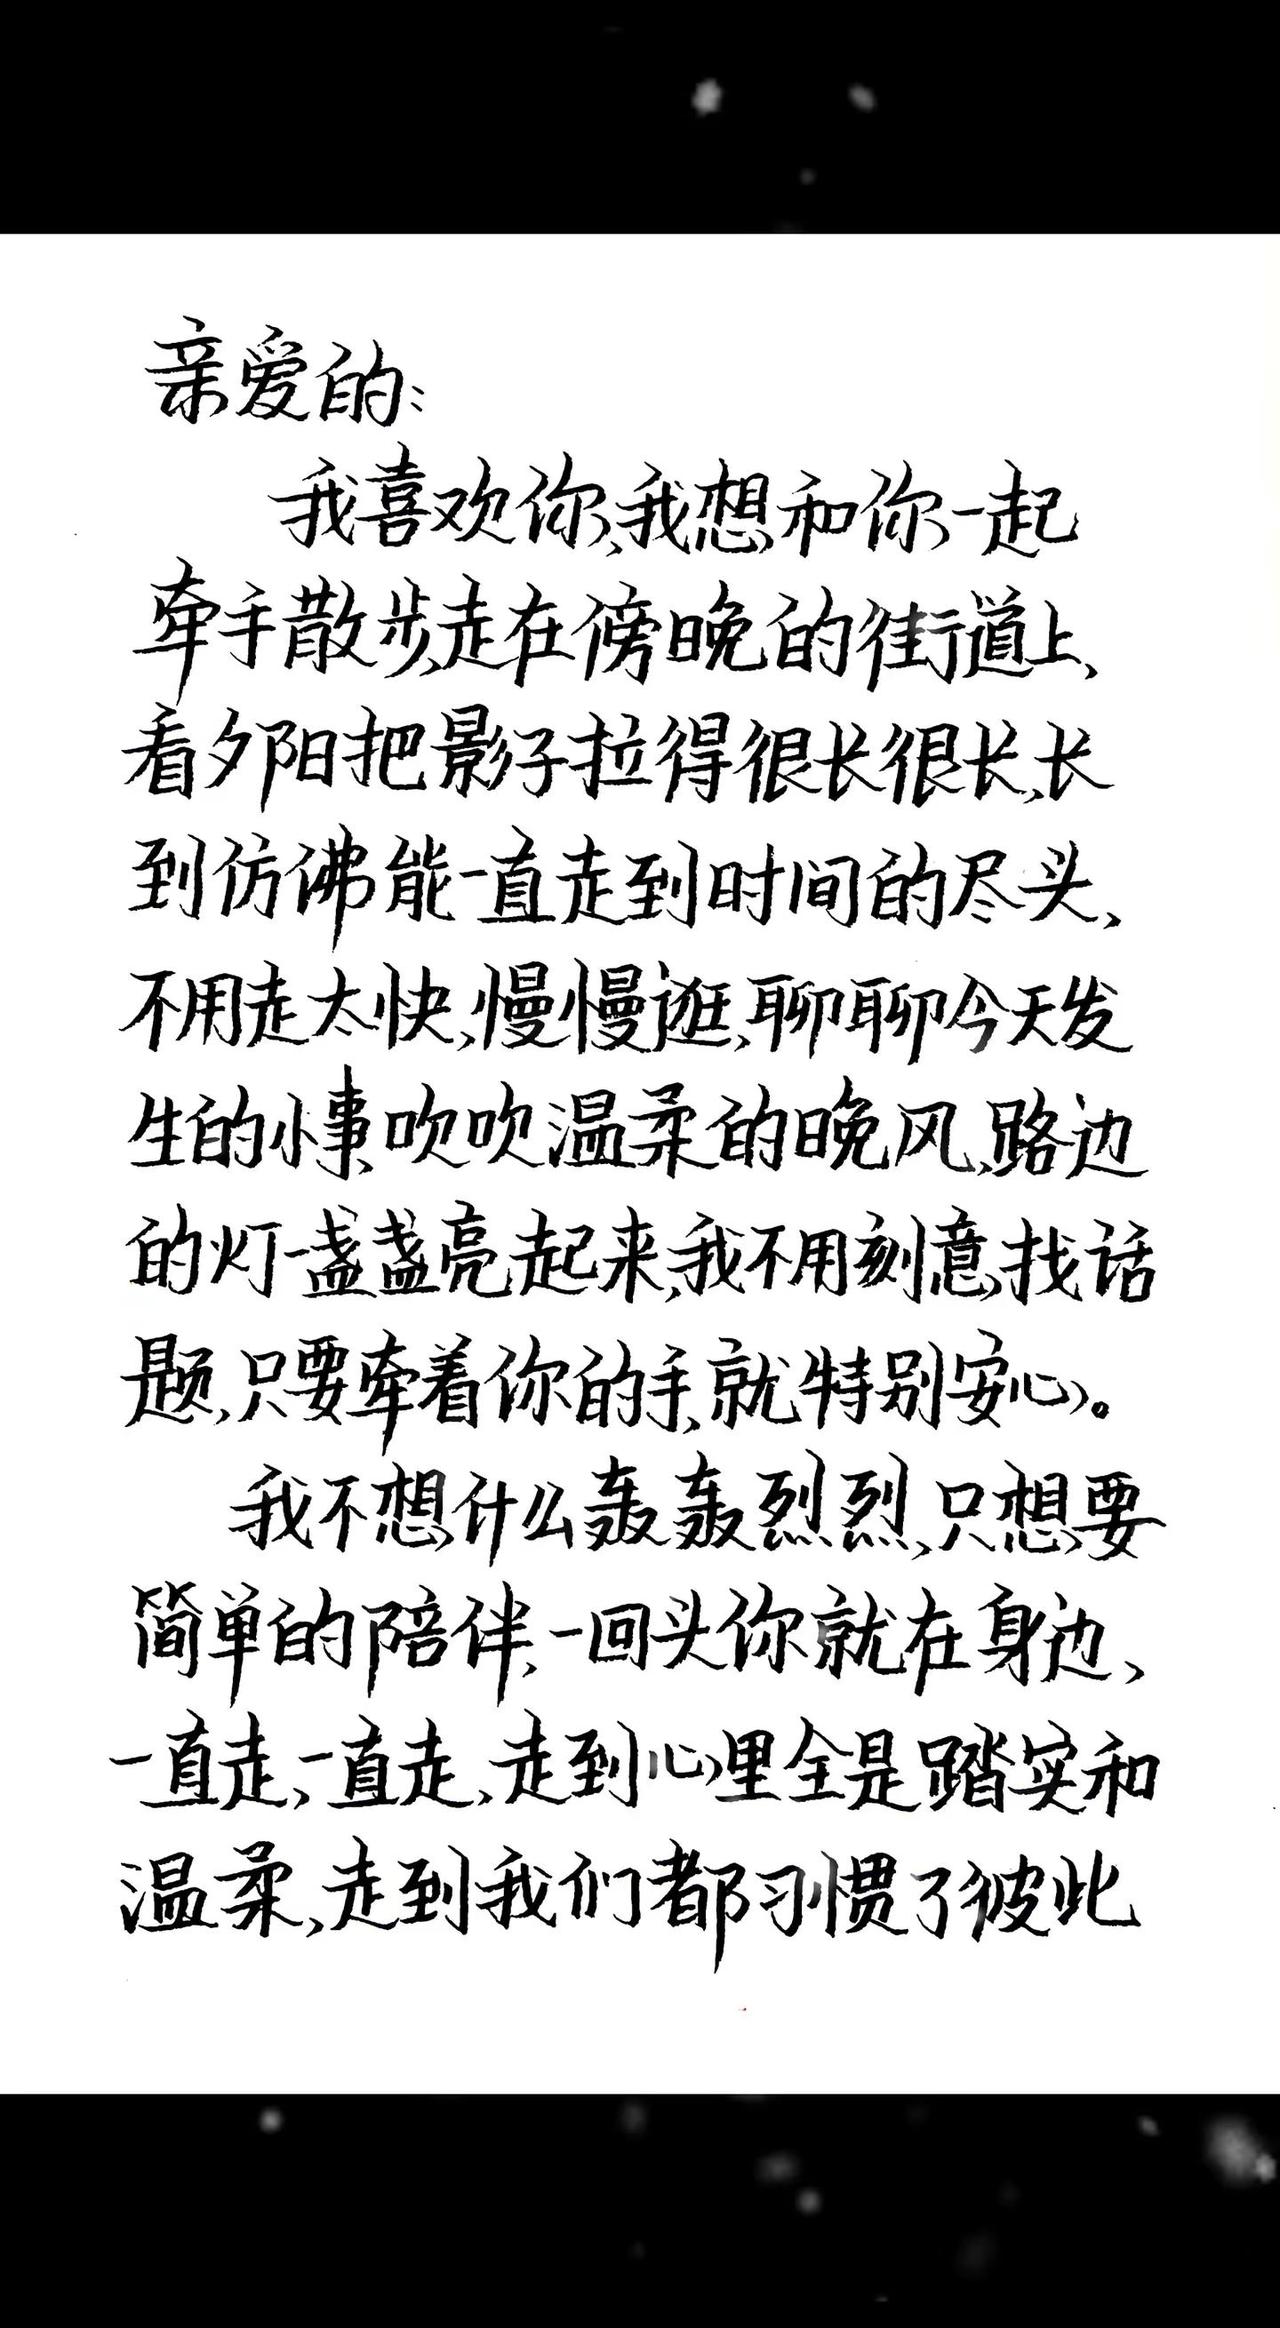 亲爱的：
我喜欢你，我想和你一起
牵手散步，走在傍晚的街道上，
看夕阳把影子拉得很长很长，长
到仿佛能一直走到时间的尽头，
不用走太快，慢慢逛，聊聊今天发
生的小事，吹吹温柔的晚风，路边
的灯一盏盏亮起来，我不用刻意找话
题，只要牵着你的手，就特别安心。
我不想什么轰轰烈烈，只想要
简单的陪伴，一回头你就在身边，
一直走，一直走，走到心里全是踏实和
温柔，走到我们都习惯了彼此